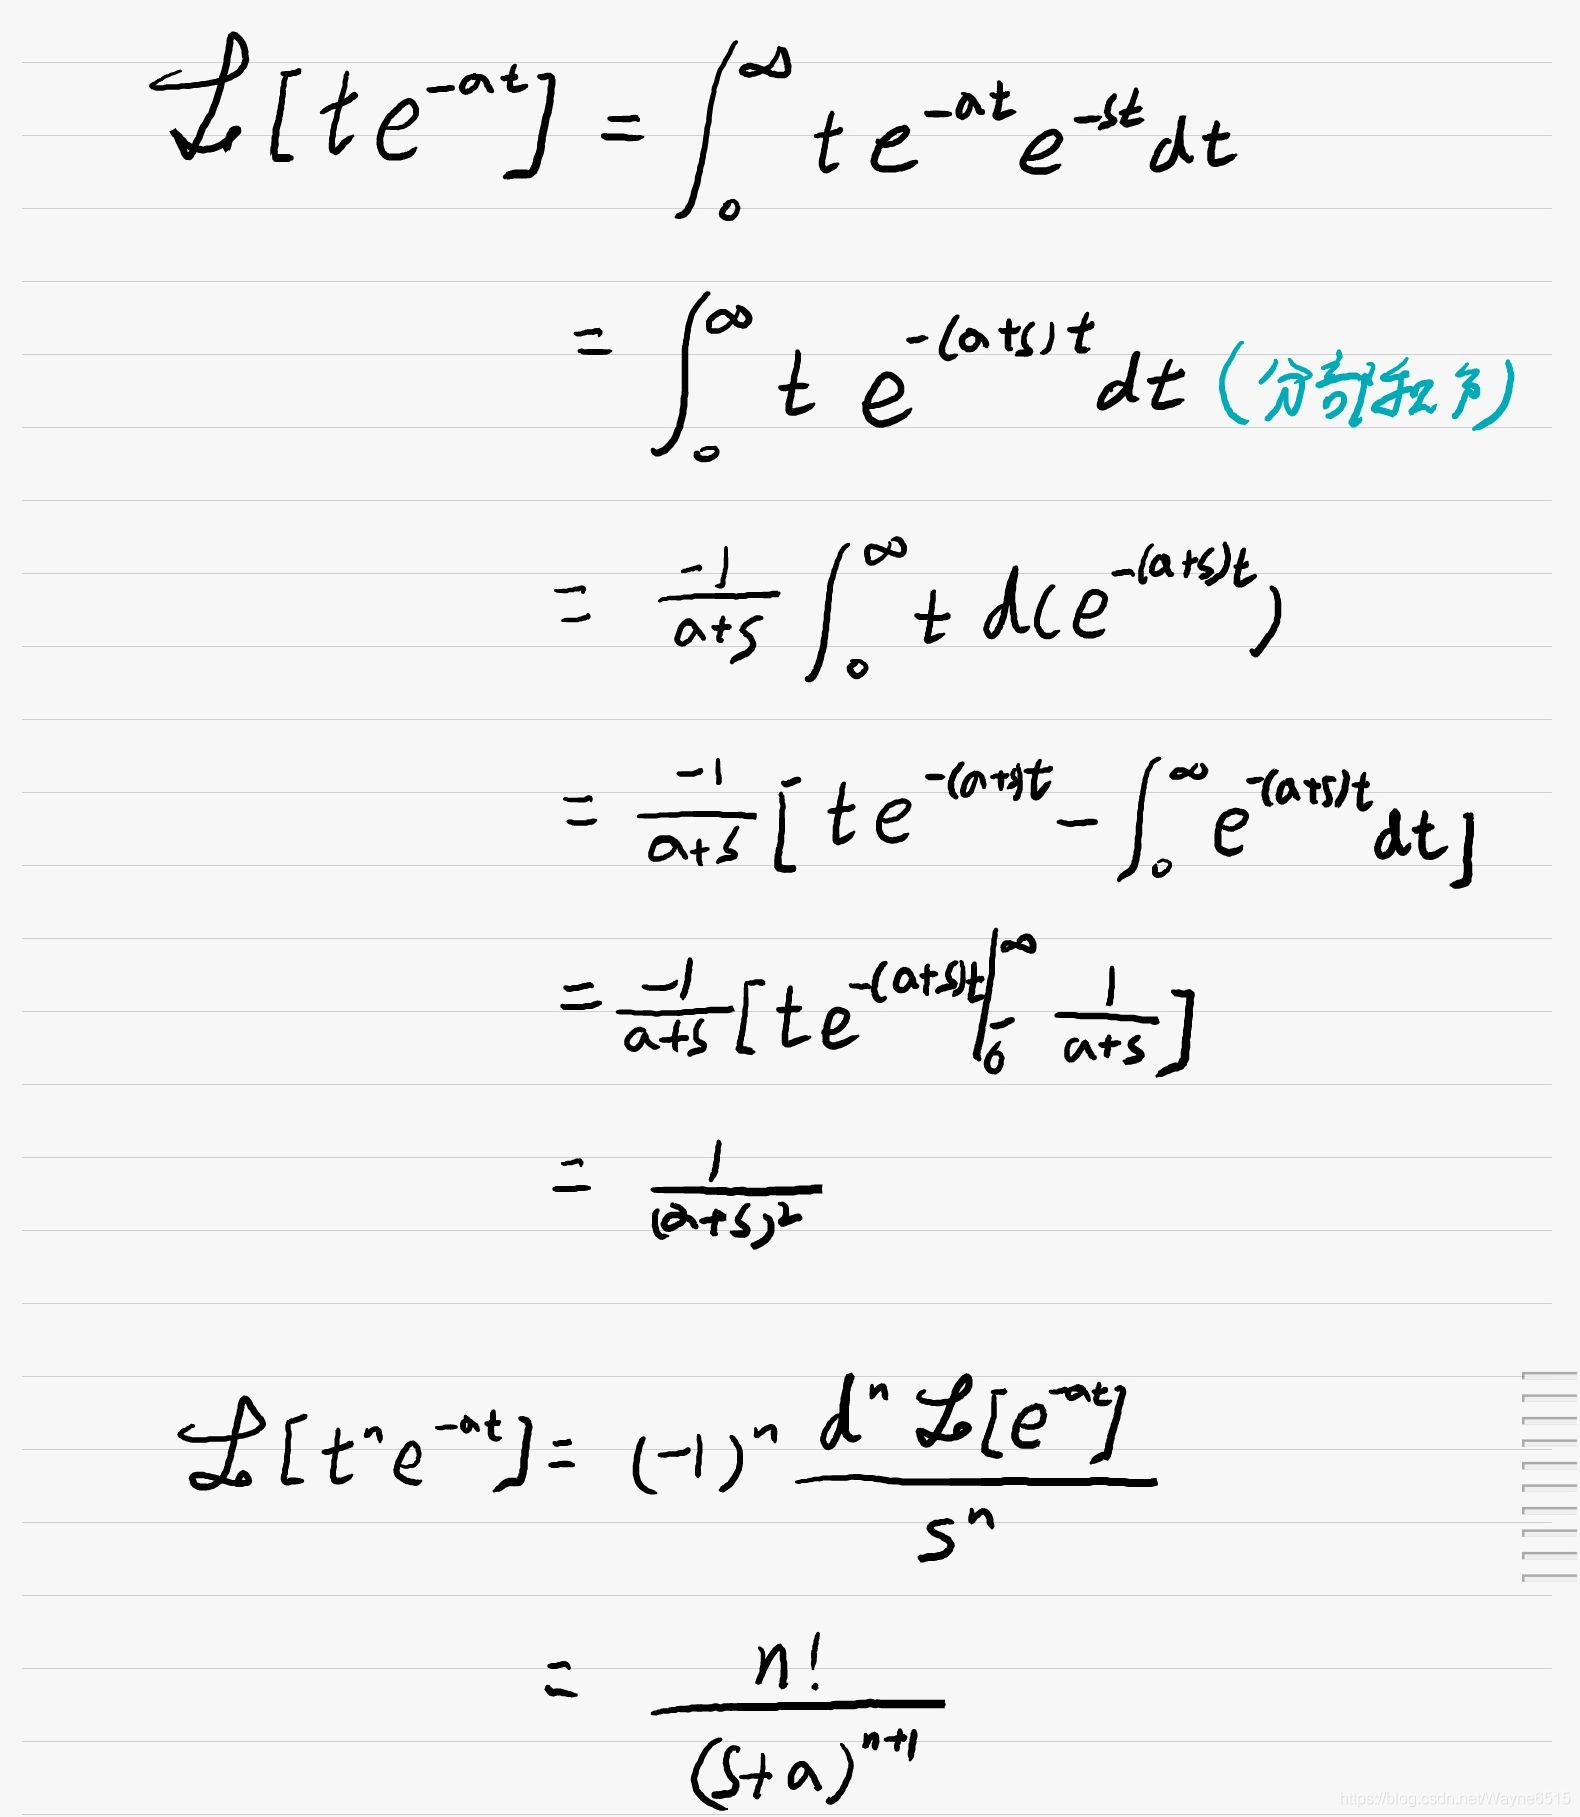 ℒ[te^{-at}] = ∫_0^∞ t e^{-at} e^{-st} dt
= ∫_0^∞ t e^{-(a+s)t} dt (分部积分)
= \frac{-1}{a+s} ∫_0^∞ t d(e^{-(a+s)t})
= \frac{-1}{a+s} [t e^{-(a+s)t} - ∫_0^∞ e^{-(a+s)t} dt]
= \frac{-1}{a+s} [t e^{-(a+s)t} |_0^∞ - \frac{1}{a+s}]
= \frac{1}{(a+s)^2}
ℒ[t^n e^{-at}] = (-1)^n \frac{d^n ℒ[e^{-at}]}{s^n}
= \frac{n!}{(s+a)^{n+1}}
https://blog.csdn.net/Wayne6515